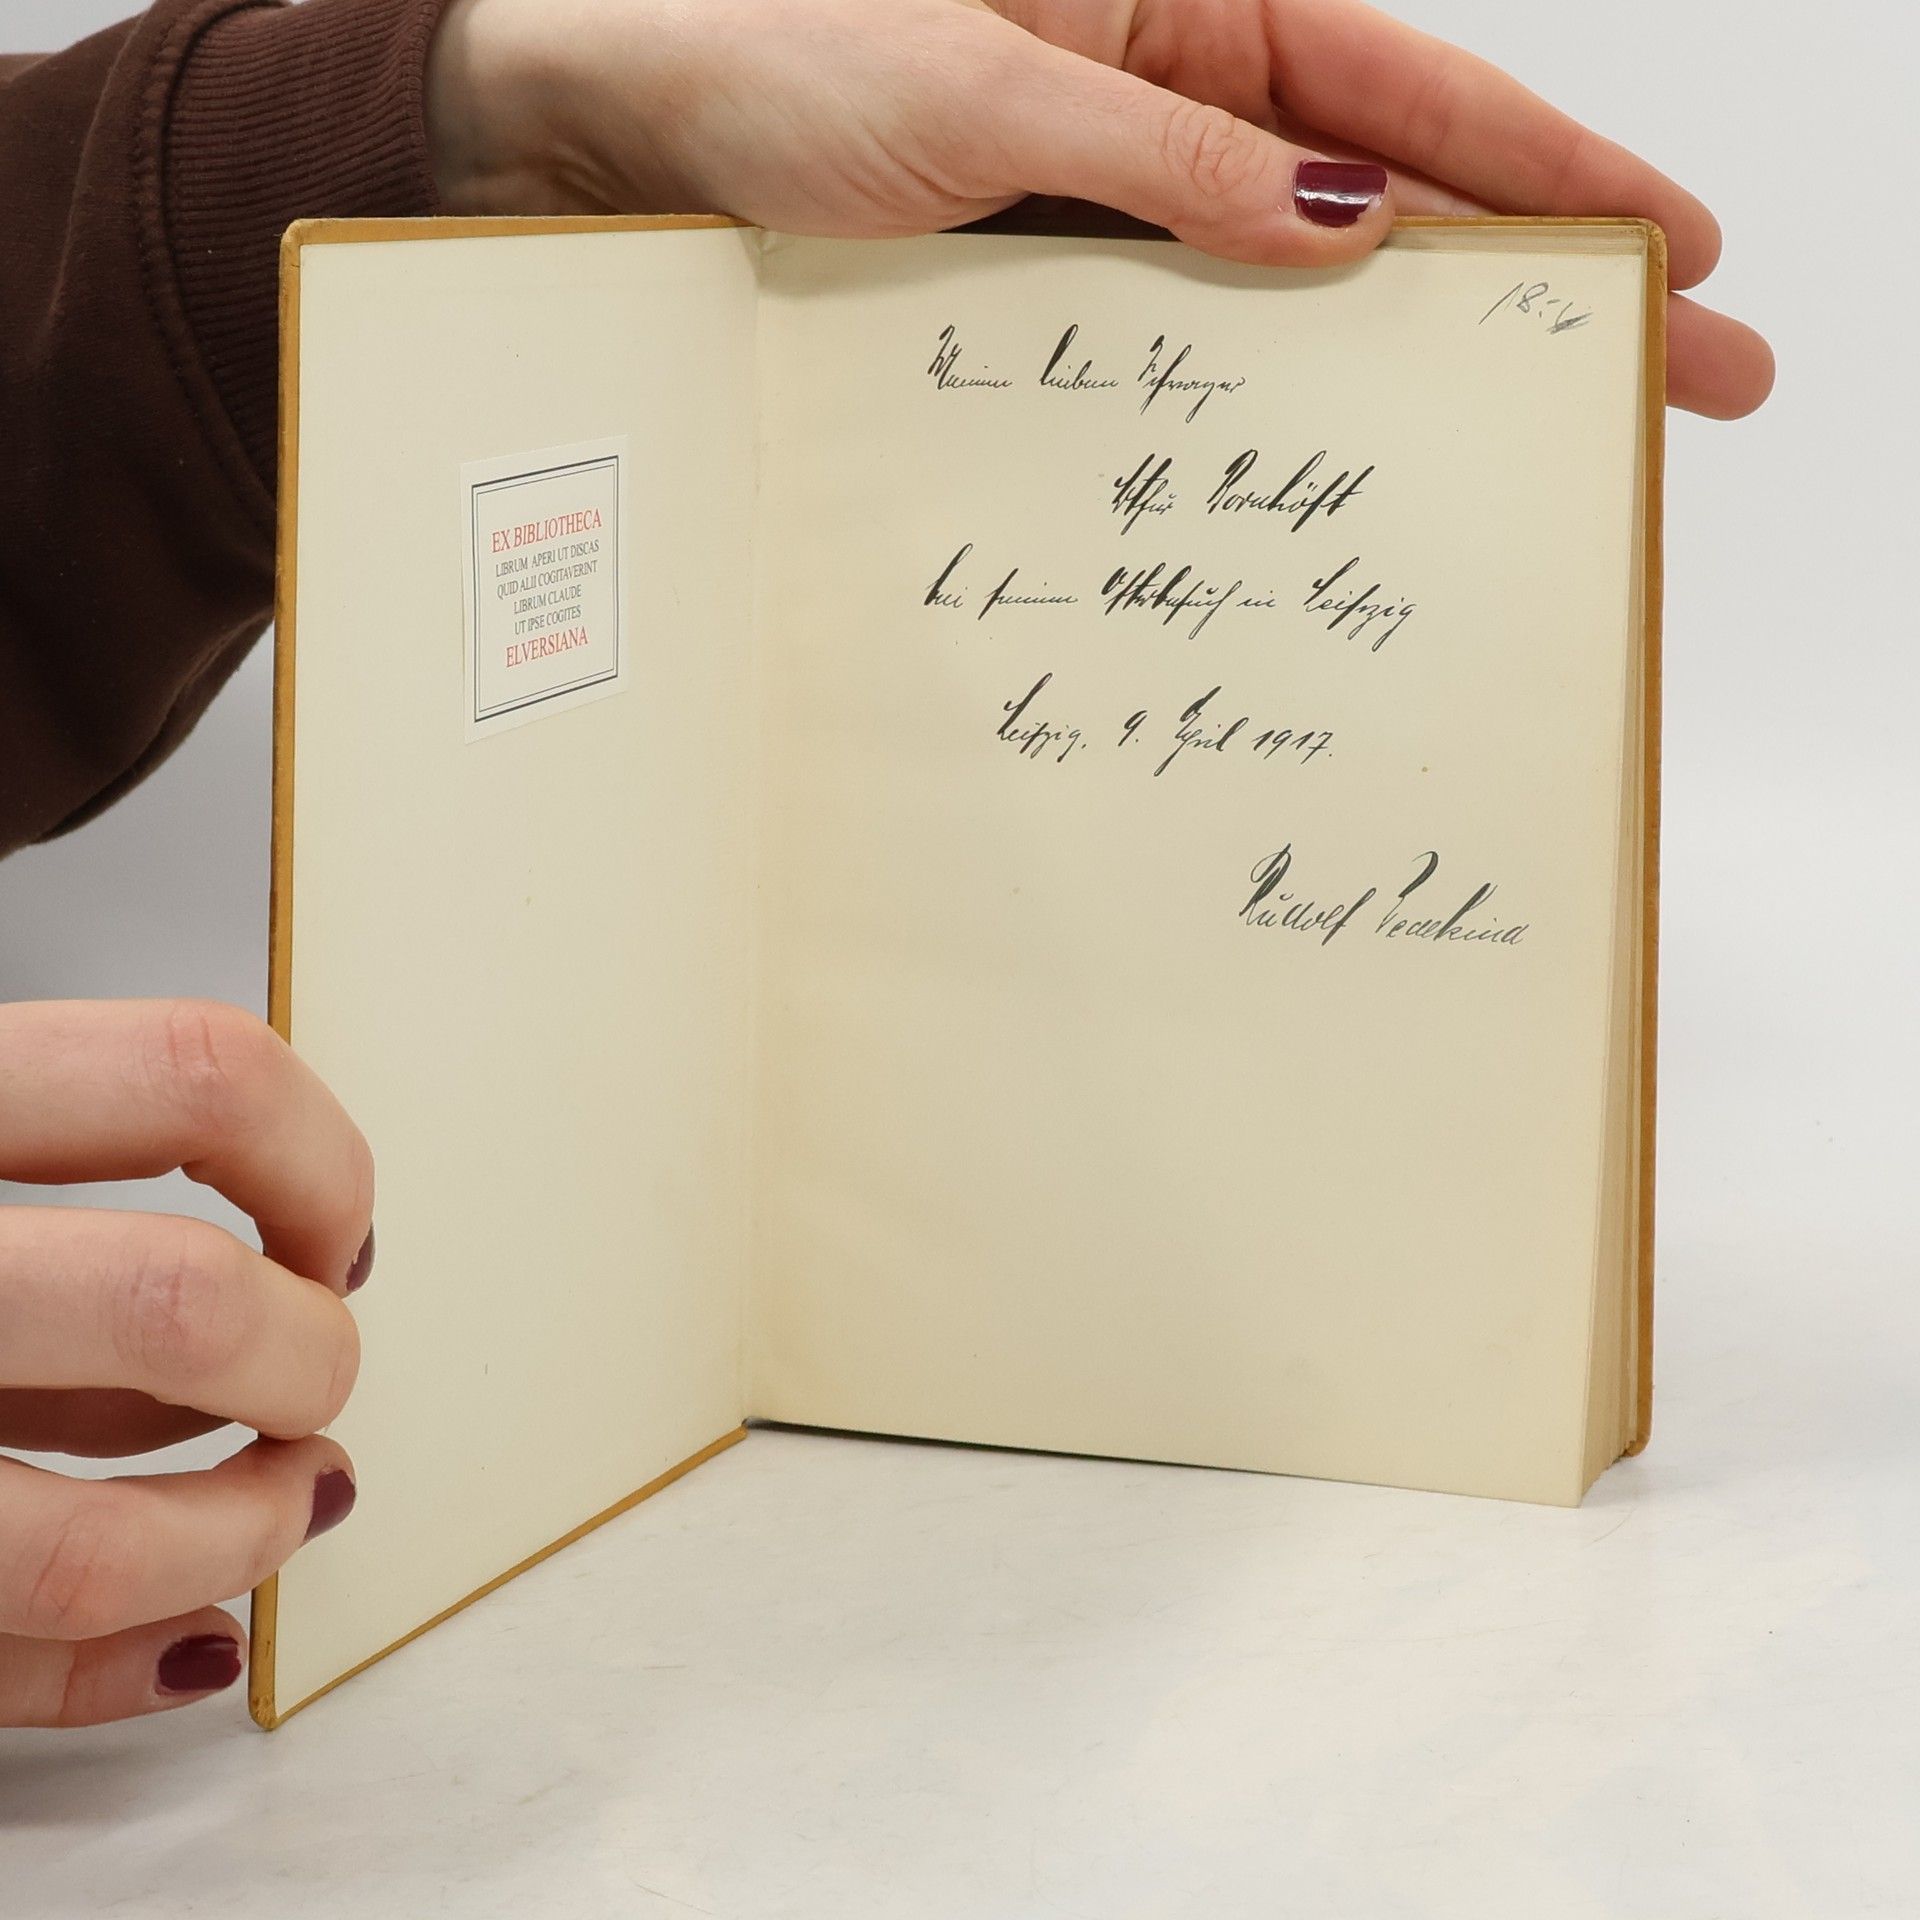 EX BIBLIOTHECA
LIBRUM APERI UT DISCAS
QUID ALII COGITAVERINT
LIBRUM CLAUDE
UT IPSE COGITES
ELVERSIANA
18.-
Meinem lieben Schwager
Arthur Bornhöft
bei seinem Osterbesuch in Leipzig
Leipzig, 9. April 1917.
Rudolf Wedekind